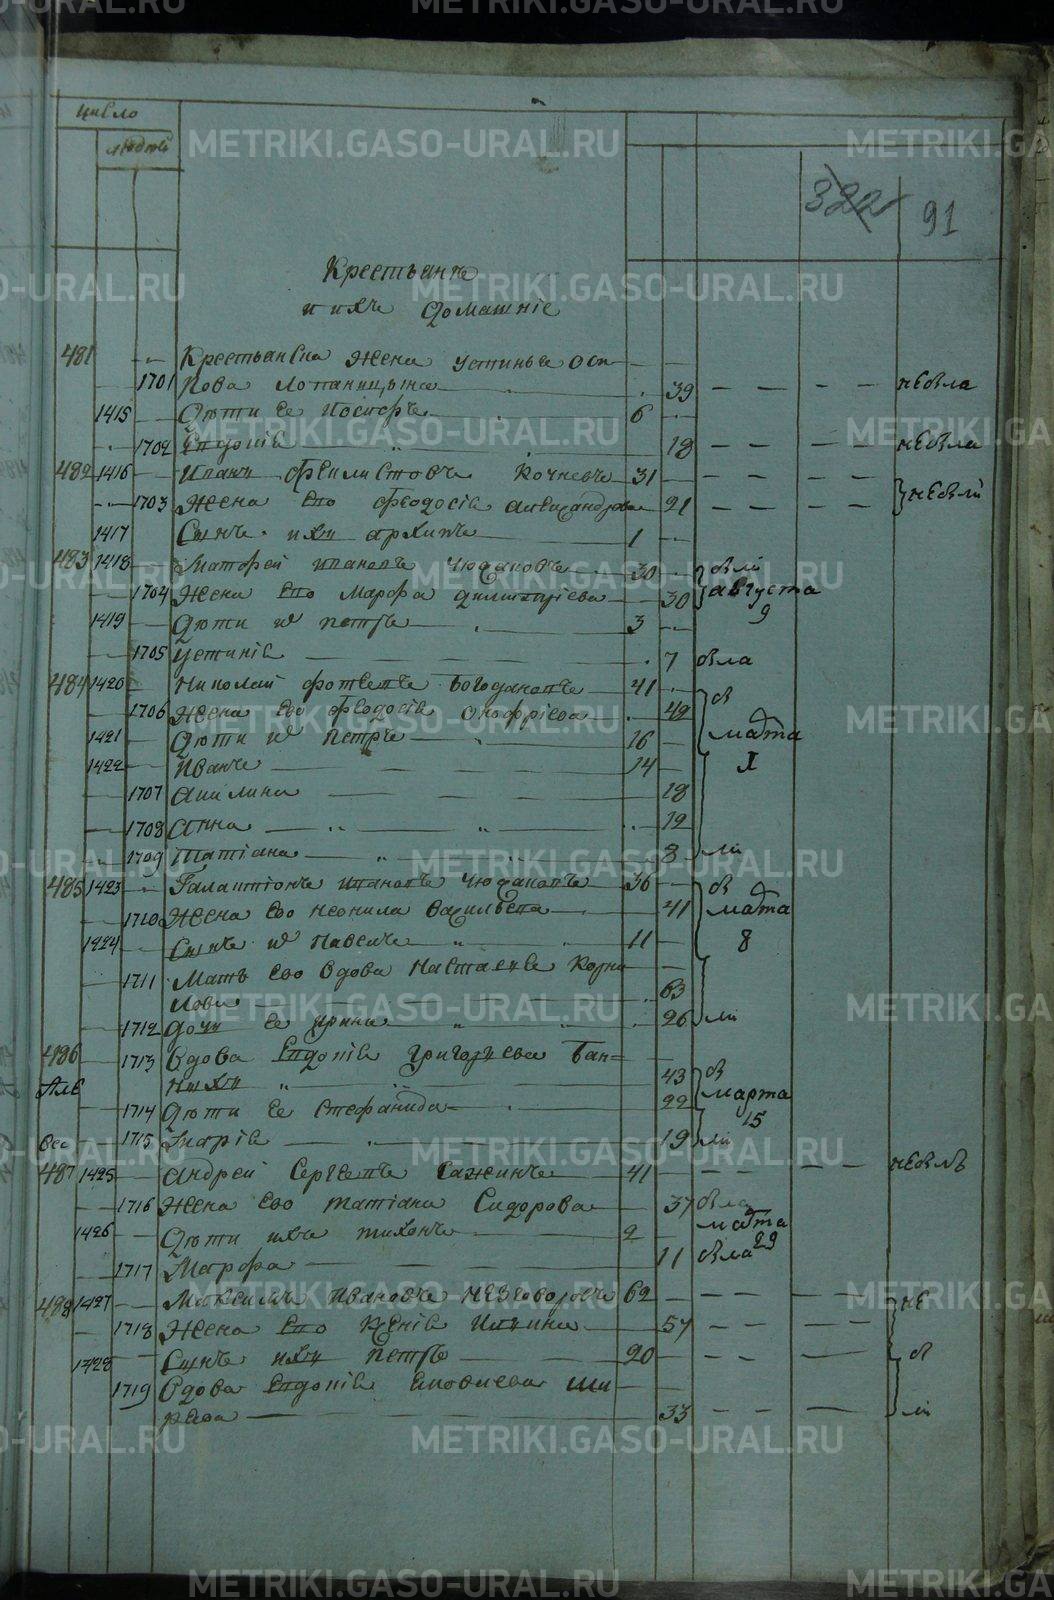 METRIKI.GASO-URAL.RU
число
людей
322 91
Крестьянъ
и ихъ домашніе
481 Крестьянска жена устинья оси
1701 пова 39 небыла
1415 Дѣти ее Иосифъ 6
1702 Евдокія 18 небыла
482 1416 Иванъ Кочневъ 31
1703 жена его Феодосія александрова 21 небыли
1417 Сынъ ихъ архипъ 1
483 1418 Матфей ивановъ Чюдановъ 30 были
1704 жена его Марфа димитріева 30 августа
1419 Дѣти их петръ 3 9
1705 Устинія 7 была
484 1420 Николай фотеевъ Богодановъ 41 бы
1706 жена его Феодосія Онофріева 42
1421 Дѣти их петръ 16 марта
1422 иванъ 14 1
1707 Акилина 18
1708 анна 12
1709 татіана 8 ли
485 1423 Галактіонъ ивановъ Чюдановъ 36 бы
1710 жена его неонила васильева 41 марта
1424 Сынъ их павелъ 11 8
1711 Мать его вдова настасья Корни
лова 63
1712 дочь ее ирина 26 ли
486 1713 Вдова Евдокія григорьева Бан=
ныхъ 43 бы
1714 Дѣти ее стефанида 22 марта 15
1715 марія 19 ли
487 1425 андрей Сергеевъ Сажинъ 41 небылъ
1716 жена его татіана Сидорова 37 была
1426 Дѣти ихъ тихонъ 2 марта
1717 Марфа 11 была 29
488 1427 Максимъ ивановъ Незговоровъ 62 не
1718 жена его Ксенія Ильина 57
1428 Сынъ ихъ петръ 20 бы
1719 Вдова Евдокія яковлева Ши
ряева 33 ли